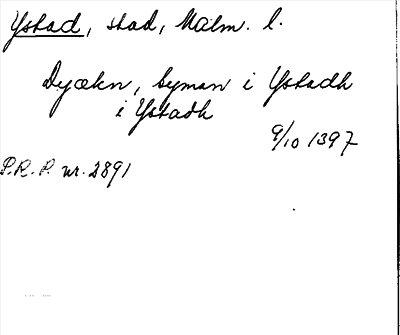 Ystad, stad, Malm. l.
Dyækn, Syman i Ystadh
i Ystadh
9/10 1397
P.R.P. nr. 2891